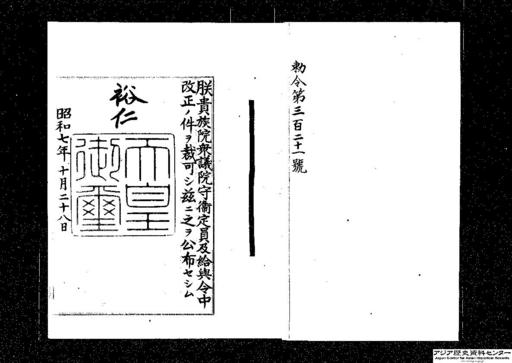 勅令第三百二十一號
朕貴族院衆議院守衞定員及給與令中
改正ノ件ヲ裁可シ茲ニ之ヲ公布セシム
裕仁
天皇
御璽
昭和七年十月二十八日
アジア歴史資料センター
Japan Center for Asian Historical Records